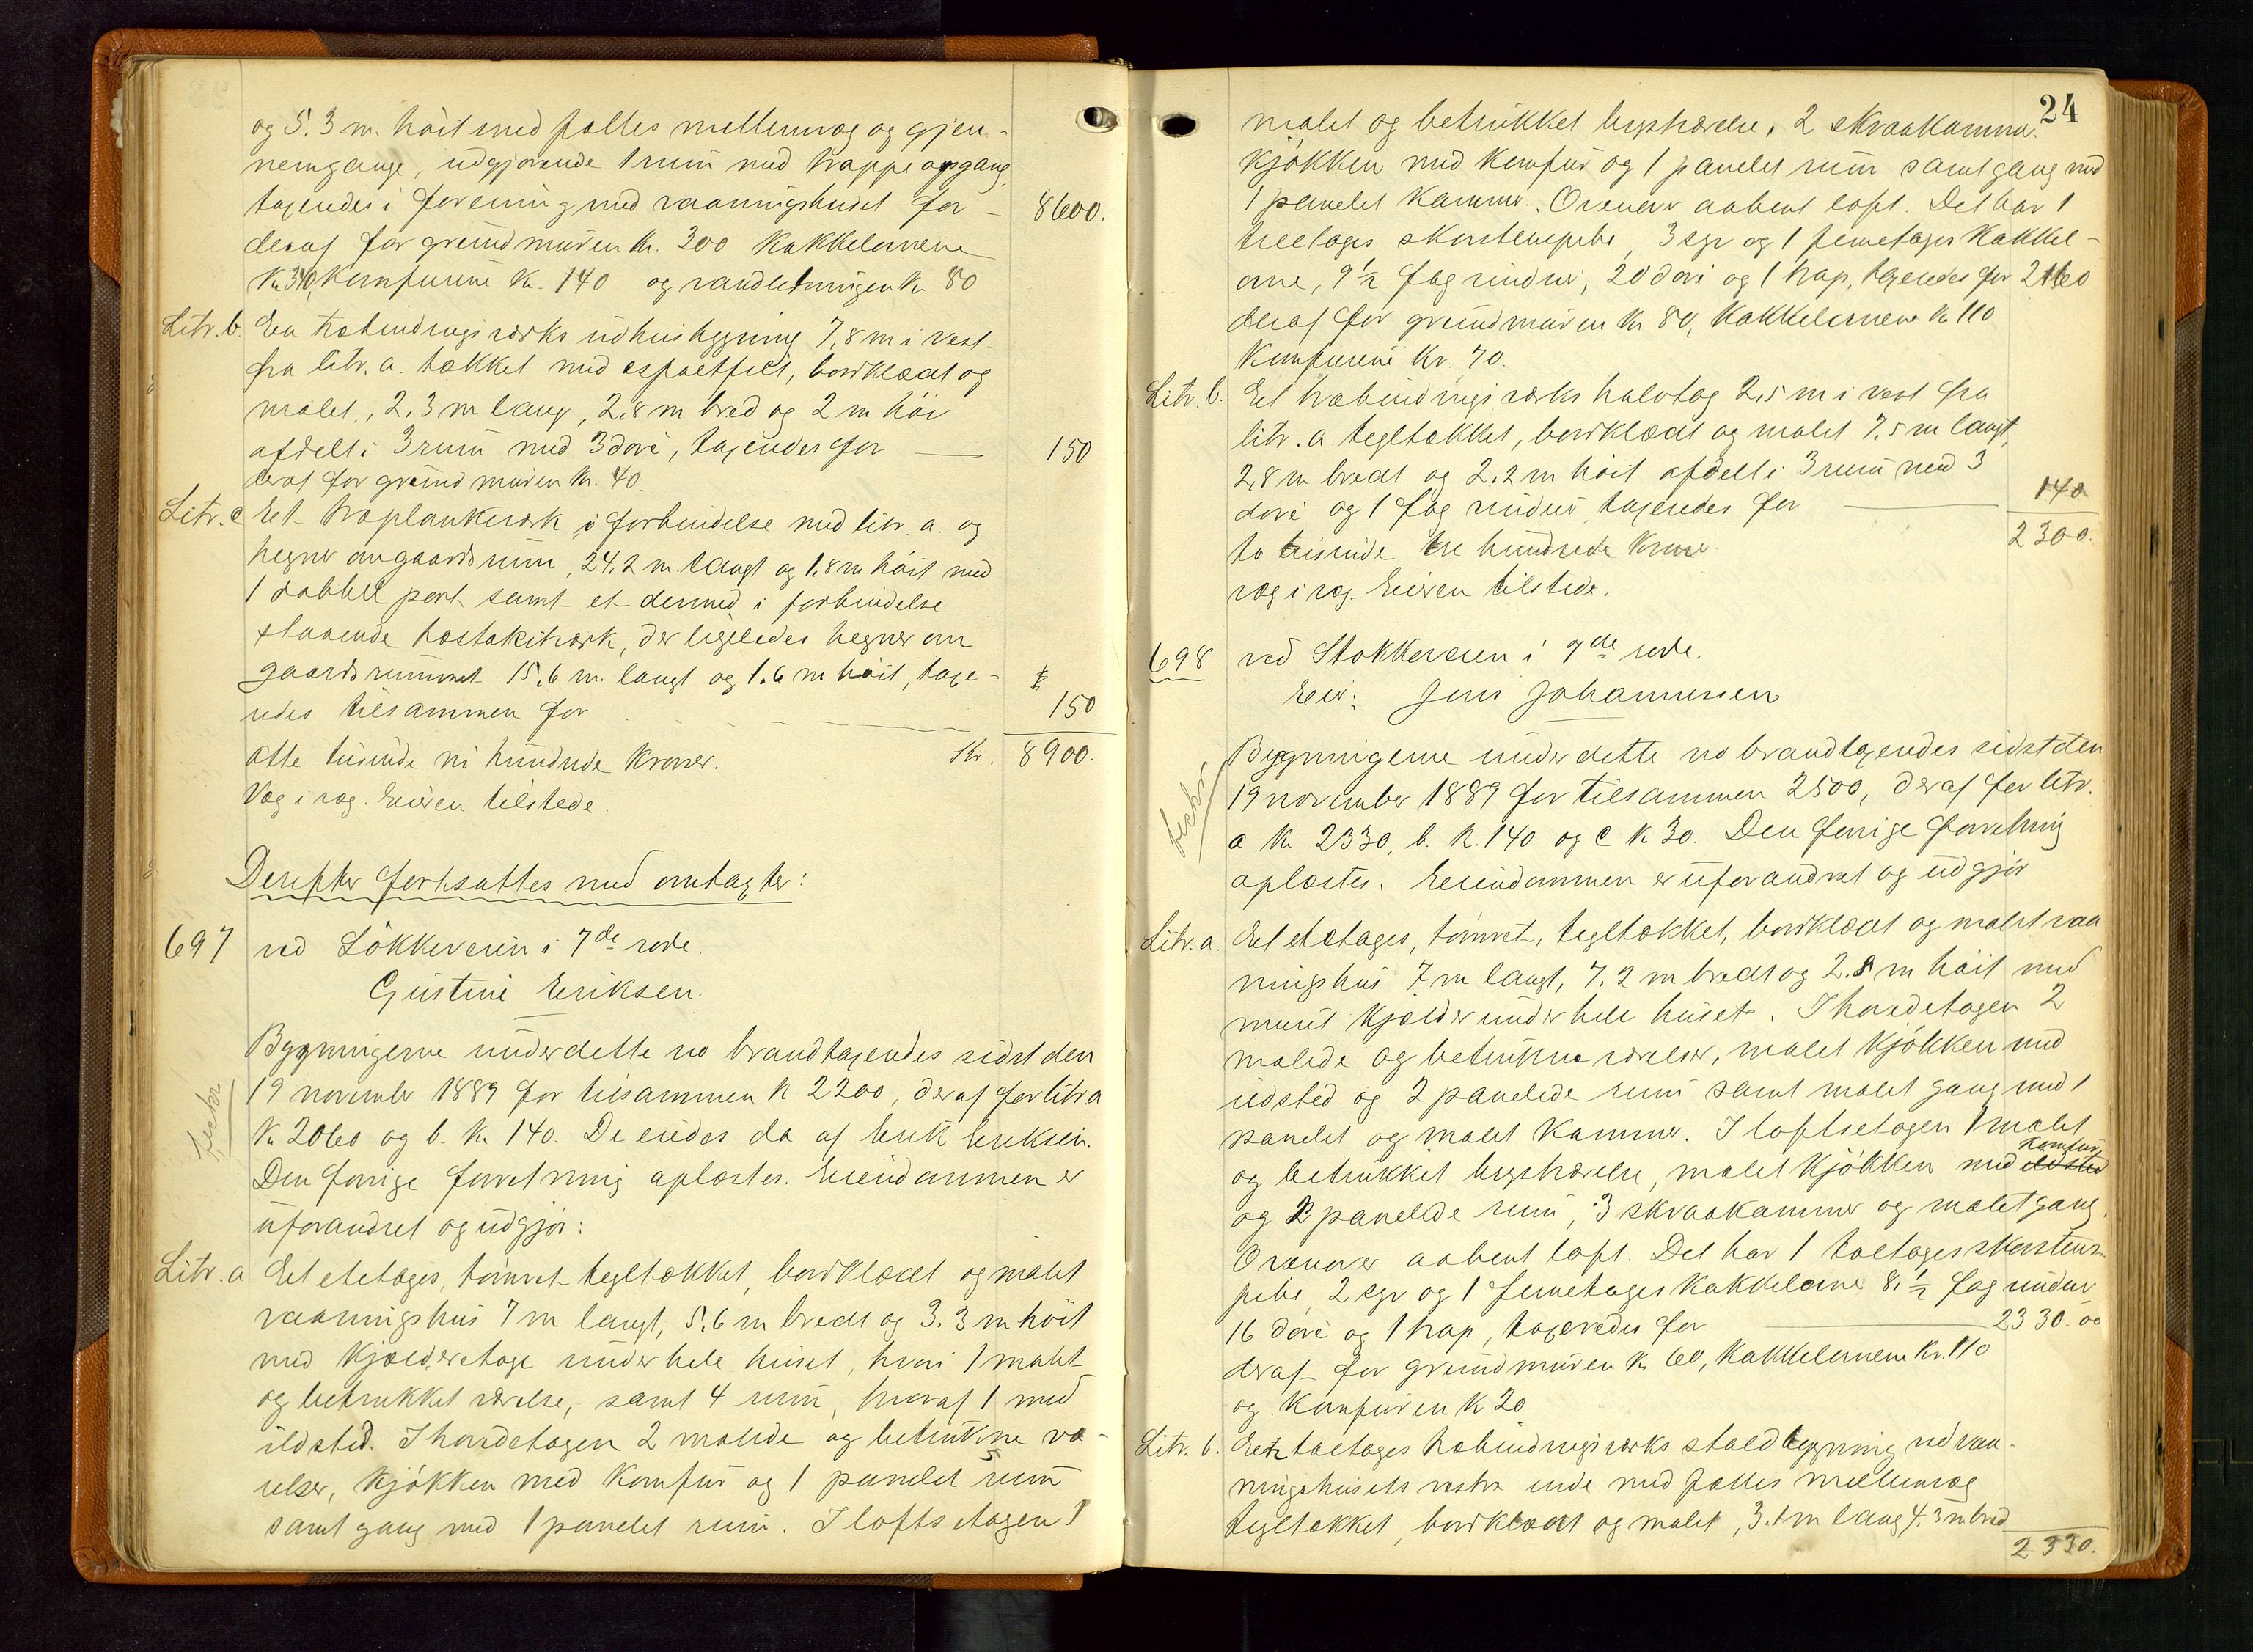 og 5.3 m. höit med fælles mellemvæg og gjen-
nemgange, udgjørende 1 rum med trappeopgang,
taxeredes i forening med vaaningshuset for – 8600.
deraf for grundmuren kr. 300 kakkelovnene
Kr 340, komfurene kr. 140 og vandledningen kr 80
Litr. b. En træbindingsværks udhusbygning 7,8 m i vest
fra litr. a. tækket med asfaltfilt, bordklædt og
malet, 2.3 m lang, 2,8 m bred og 2 m höi
afdelt i 3 rum med 3 döre, taxeredes for — 150
deraf for grundmuren kr. 40.
Litr. c Et træplankeværk i forbindelse med litr. a. og
hegner om gaardsrum, 24,2 m. langt og 1,8 m höit med
1 dobbelt port samt et dermed i forbindelse
staaende træstakitværk, der ligeledes hegner om
gaardsrummet 15,6 m. langt og 1.6 m höit, taxe-
redes tilsammen for 150
otte tusinde ni hundrede kroner. Kr. 8900.
Væg i væg. Eieren tilstede.
Derefter fortsattes med omtaxter:
697 ved Lökkeveien i 7de rode.
Gustine Eriksen.
Bygningerne under dette no brandtaxeredes sidst den
19 november 1889 for tilsammen k 2200, deraf for litr a
Kr 2060 og b. kr 140. De eiedes da af Erik Eriksen.
Den forrige forretning oplæstes. Eiendommen er
uforandret og udgjör:
Litr. a Et etetages, tömret tegltækket, bordklædt og malet
vaaningshus 7 m langt, 5.6 m bredt og 3.3 m höit
med kjælderetage under hele huset, hvori 1 malet
og betrukket værelse, samt 4 rum, hvoraf 1 med
ildsted. I hovedetagen 2 malede og betrukne væ-
relser, kjökken med komfur og 1 panelet rum
samt gang med 1 panelet rum. I loftsetagen 1
24
malet og betrukket kvistværelse, 2 skraakammer.
kjökken med komfur og 1 panelet rum samt gang med
1 panelet kammer. Ovenover aabent loft. Det har 1
treetages skorstenspibe, 3 egr og 1 femetages kakkel-
ovne, 9 ½ fag vinduer, 20 döre og 1 trap, taxeredes for 2160
deraf for grundmuren kr 80, kakkelovnene kr 110
Komfurene kr. 70.
Litr. b. Et træbindingsværks halvtag 2,5 m i vest fra
litr. a tegltækket, bordklædt og malet 7,5 m langt,
2,8 m bredt og 2.2 m höit afdelt i 3 rum med 3
döre og 1 fag vinduer taxeredes for — 140
to tusinde tre hundrede kroner. 2300.
væg i væg. Eieren tilstede.
698 ved Stokkeveien i 7de rode.
Eier: Jens Johannessen
Bygningerne under dette no brandtaxeredes sidst den
19 november 1889 for tilsammen 2500, deraf for litr.
a kr 2330, b. k. 140 og c k 30. Den forrige forretning
oplæstes. Eiendommen er uforandret og udgjör
Litr. a. Et etetages, tömret, tegltækket, bordklædt og malet vaa
ningshus 7 m langt, 7.2 m bredt og 2.8 m höit med
muret kjælder under hele huset. I hovedetagen 2
malede og betrukne værelser, malet kjökken med
ildsted og 2 panelede rum samt malet gang med 1
panelet og malet kammer. I loftsetagen 1 malet
og betrukket kvistværelse, malet kjökken med ildsted komfur
og 2 panelede rum, 3 skraakammer og malet gang.
Ovenover aabent loft. Det har 1 toetages skorstens-
pibe, 2 egr og 1 femetages kakkelovne 8 ½ fag vinduer
16 döre og 1 trap, taxeredes for — 2330.00
deraf for grundmuren kr 60, kakkelovnene kr. 110
og komfuren k 20
Litr. b. En toetages træbindingsværks staldbygning ved vaa-
ningshusets vestre ende med fælles mellemvæg
tegltækket, bordklædt og malet, 3.1 m lang 4.3 m bred
2330.